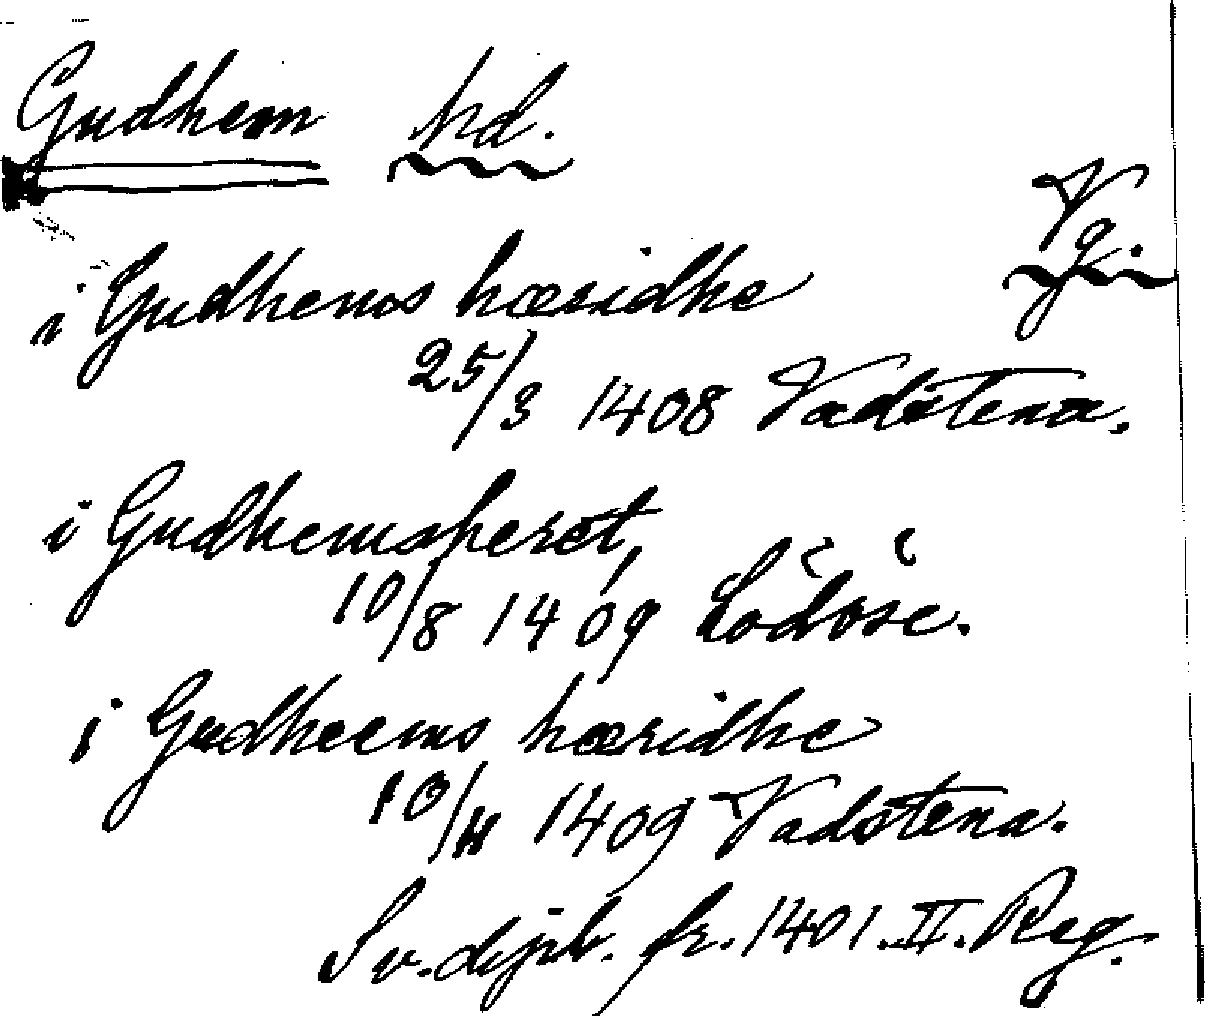 Gudhem hd.
Vg.
i Gudhems hæridhe
25/3 1408 Vadstena.
i Gudhemsheret,
10/8 1409 Lödöse.
i Gudheems hæridhe
10/11 1409 Vadstena.
Sv. dipl. fr. 1401. II. Reg.